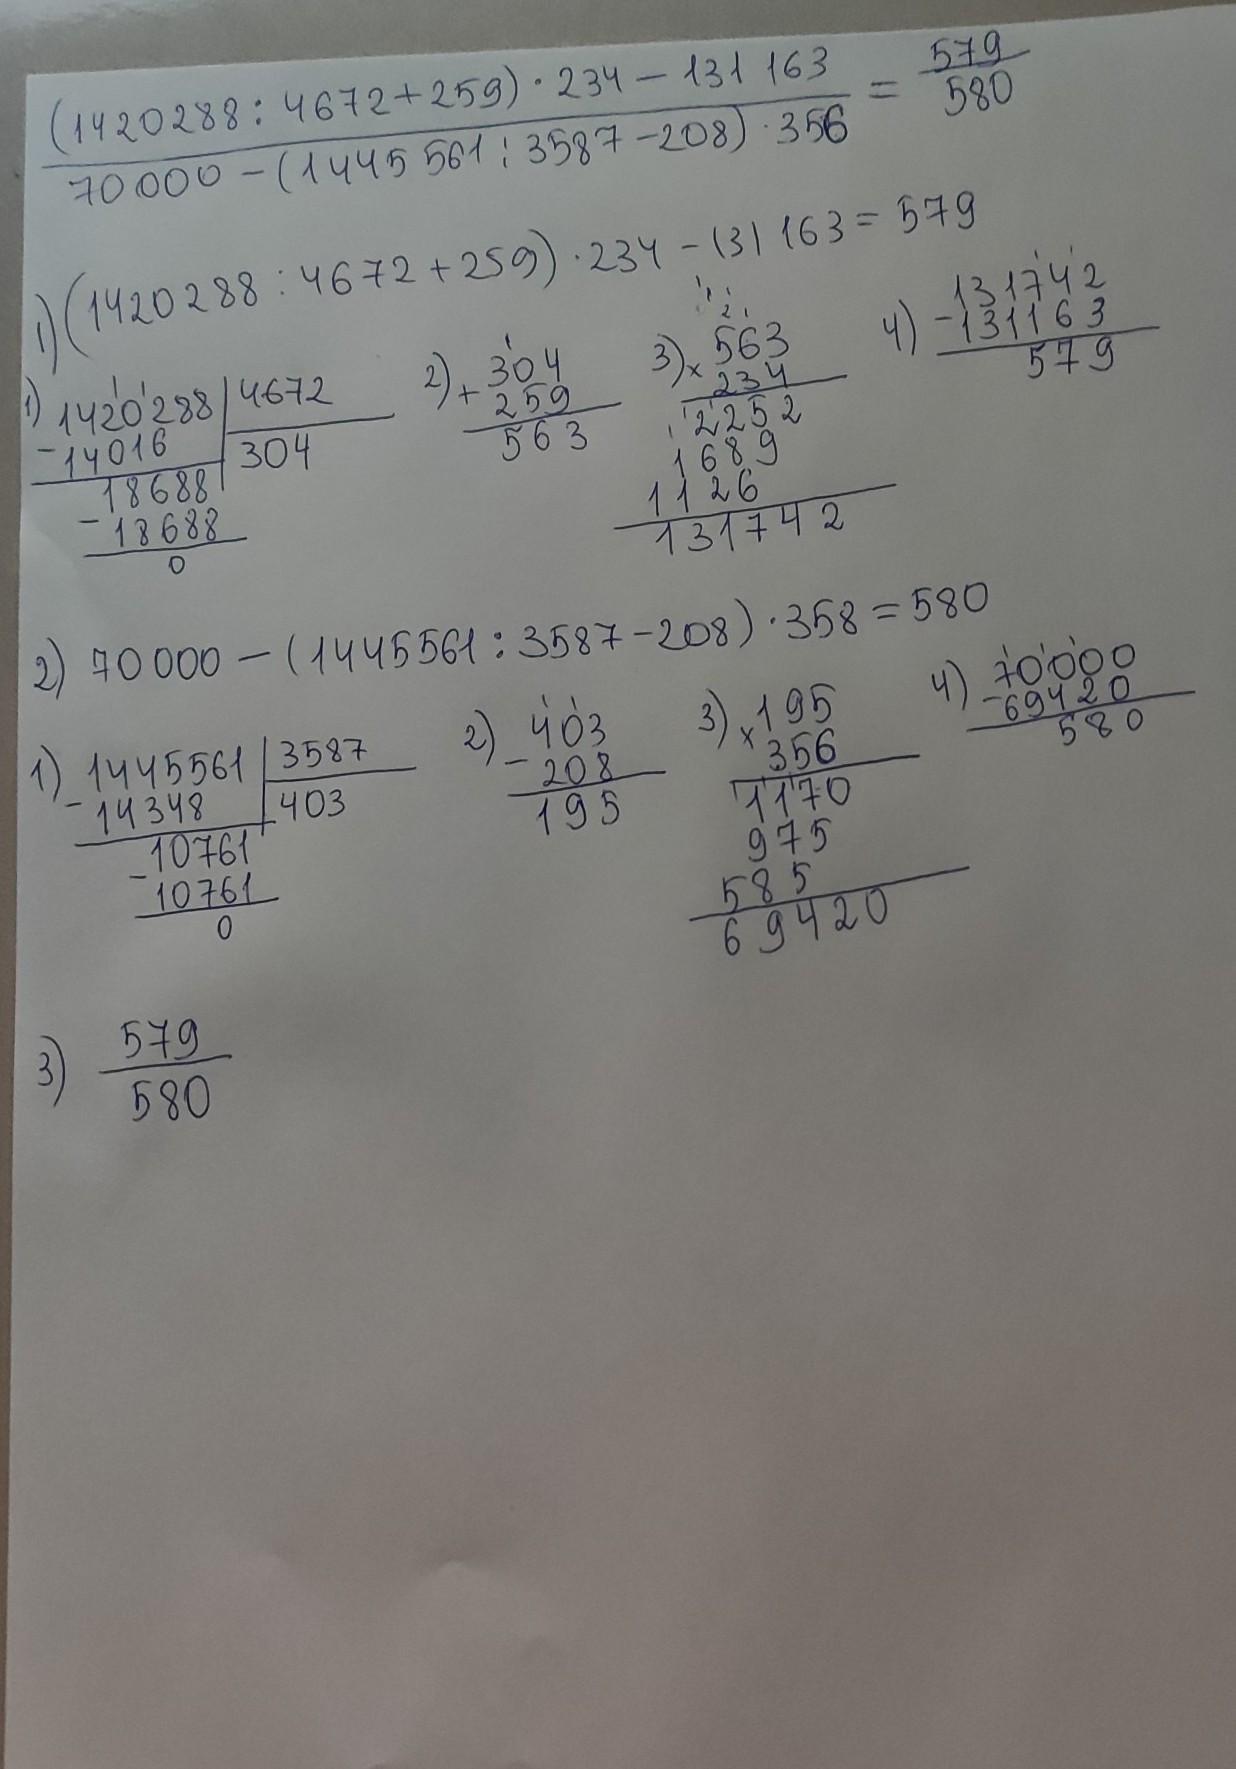 (1420288 : 4672 + 259) · 234 − 131 163 = 579
70 000 − (1445 561 : 3587 − 208) · 356 580
1) (1420288 : 4672 + 259) · 234 − 131 163 = 579
1) 1420288 4672
−14016 304
18688
−18688
0
2) 304
+ 259
563
3) 563
× 234
2252
1689
1126
131742
4) 131742
−131163
579
2) 70 000 − (1445561 : 3587 − 208) · 358 = 580
1) 1445561 3587
−14348 403
10761
−10761
0
2) 403
− 208
195
3) 195
× 356
1170
975
585
69420
4) 70000
−69420
580
3) 579
580